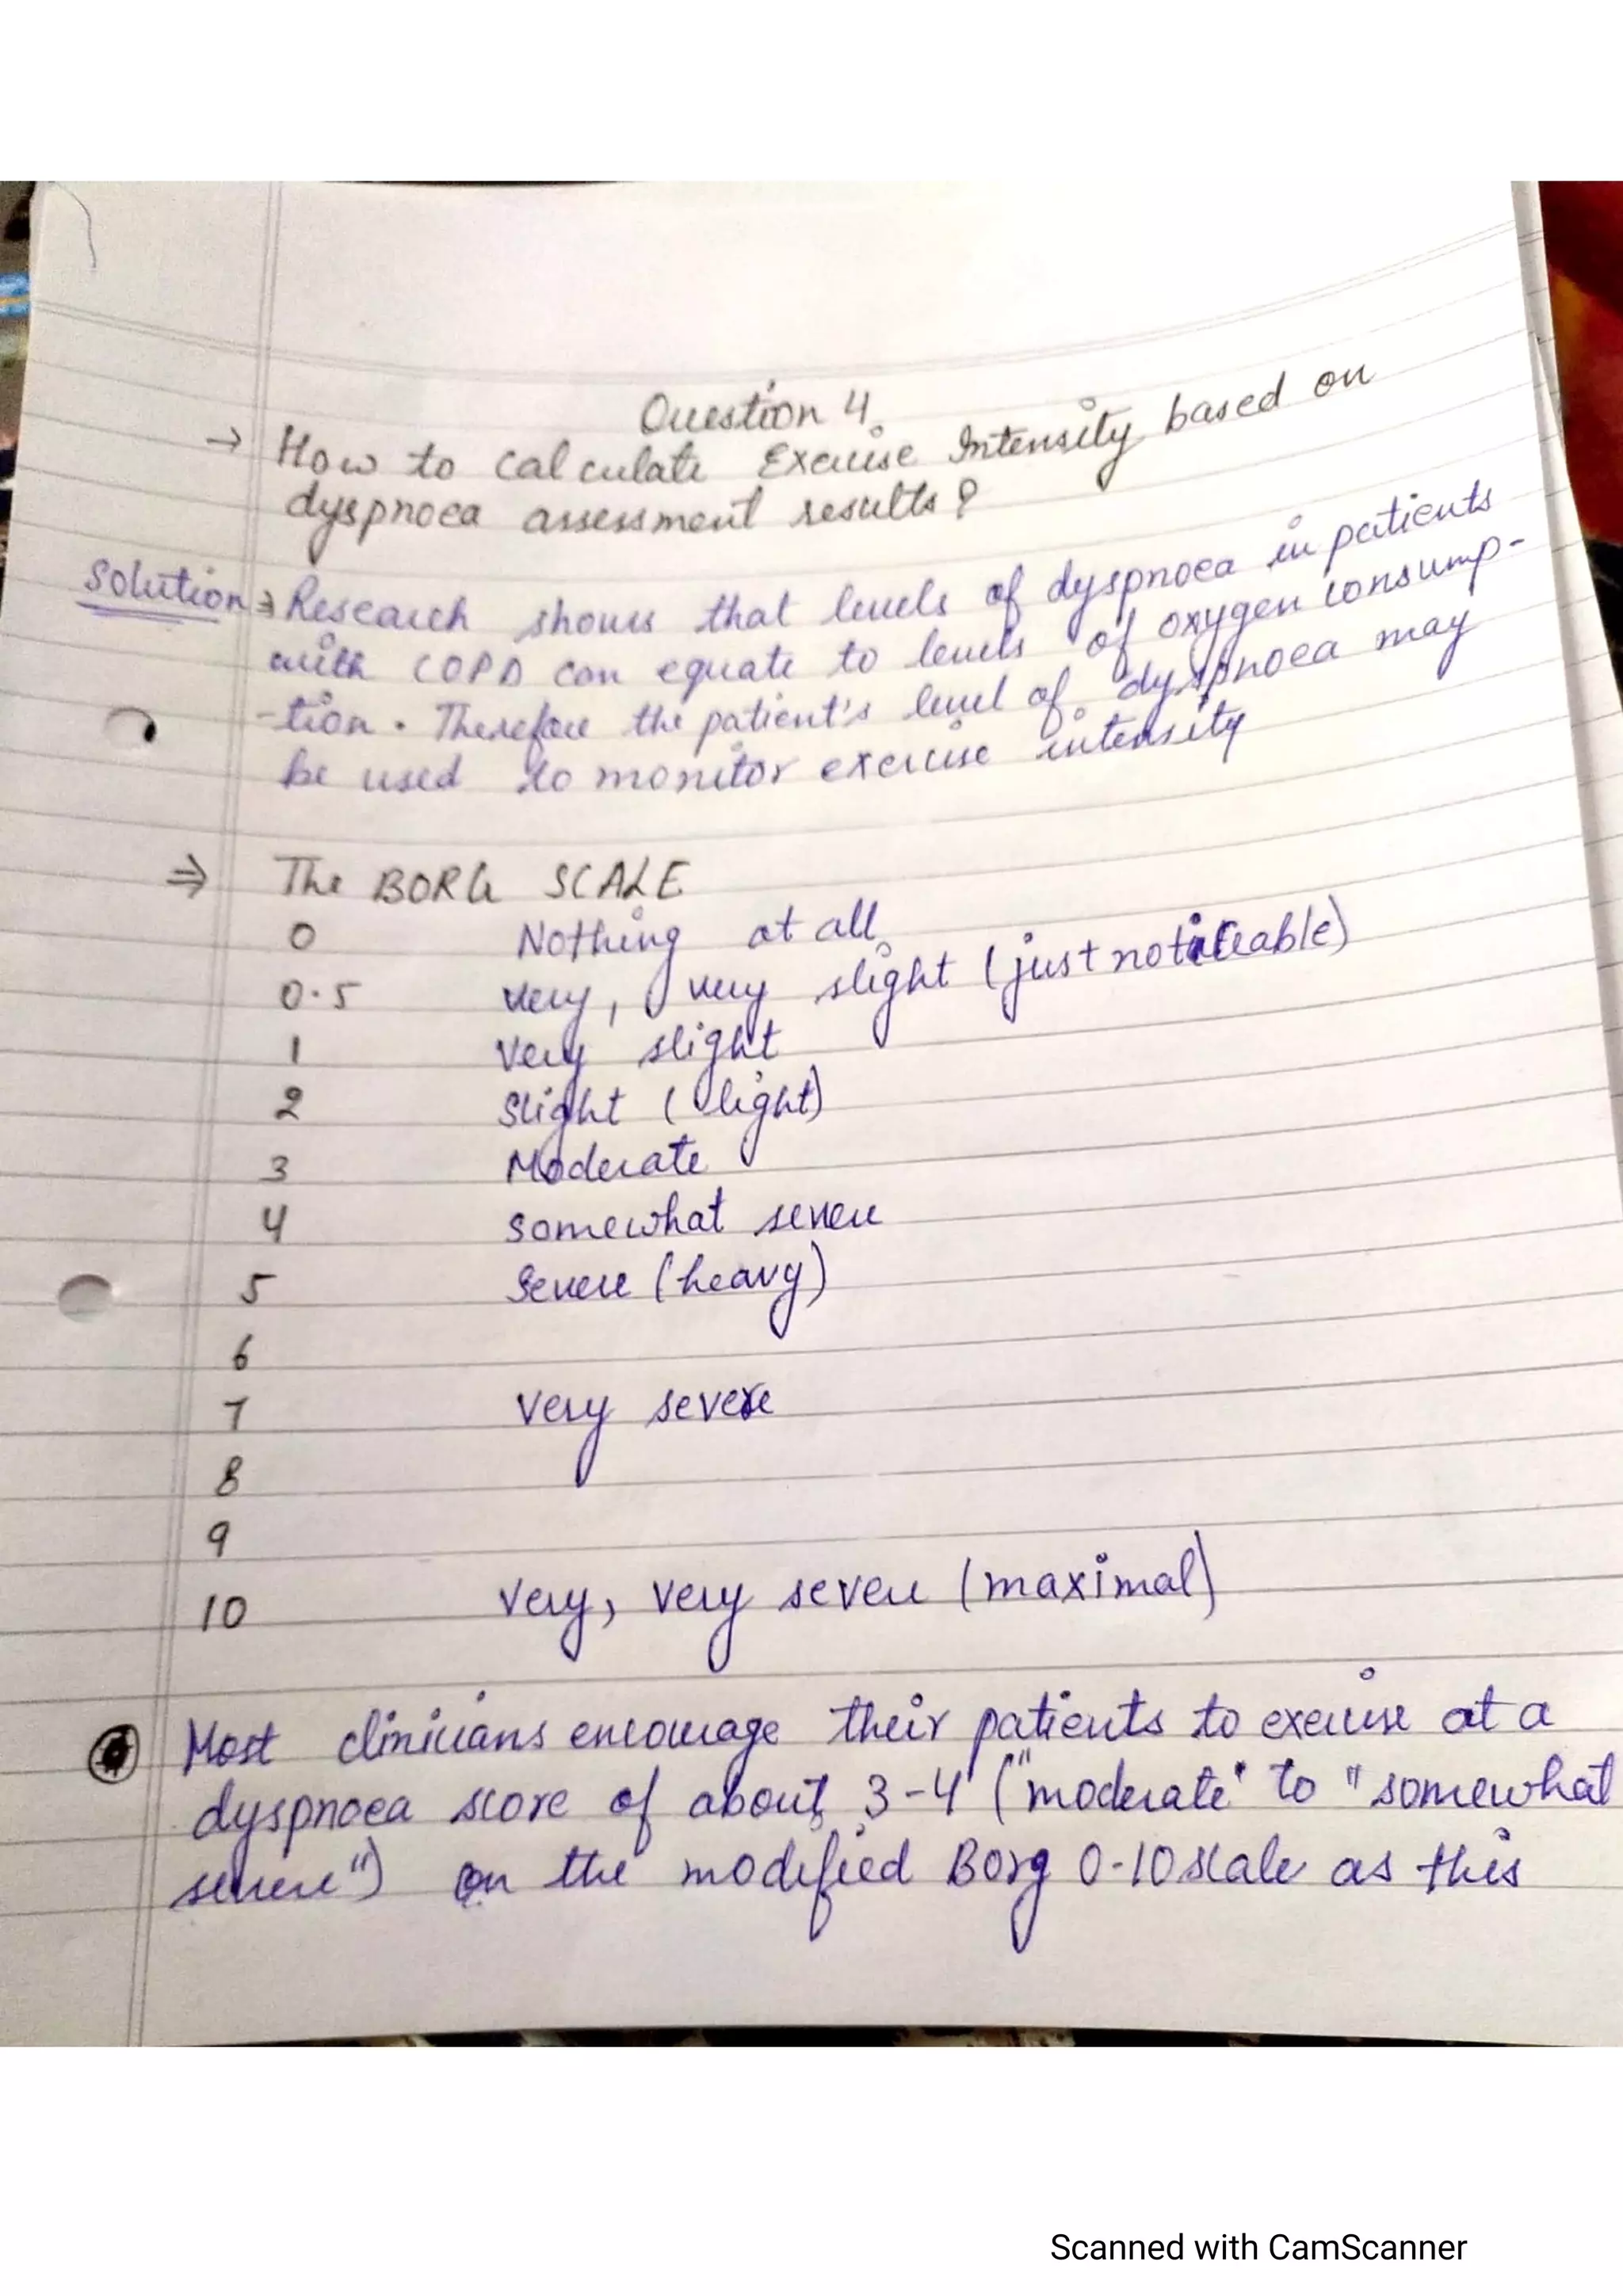 Question 4
→ How to calculate Exercise Intensity based on
dyspnoea assessment results?
Solution → Research shows that levels of dyspnoea in patients
with COPD can equate to levels of oxygen consump-
-tion. Therefore the patient's level of dyspnoea may
be used to monitor exercise intensity
⇒ The BORG SCALE
0 Nothing at all
0.5 very, very slight (just noticeable)
1 Very slight
2 Slight (light)
3 Moderate
4 somewhat severe
5 Severe (heavy)
6
7 Very severe
8
9
10 Very, very severe (maximal)
Most clinicians encourage their patients to exercise at a
dyspnoea score of about 3-4 ("moderate" to "somewhat
severe") on the modified Borg 0-10 scale as this
Scanned with CamScanner